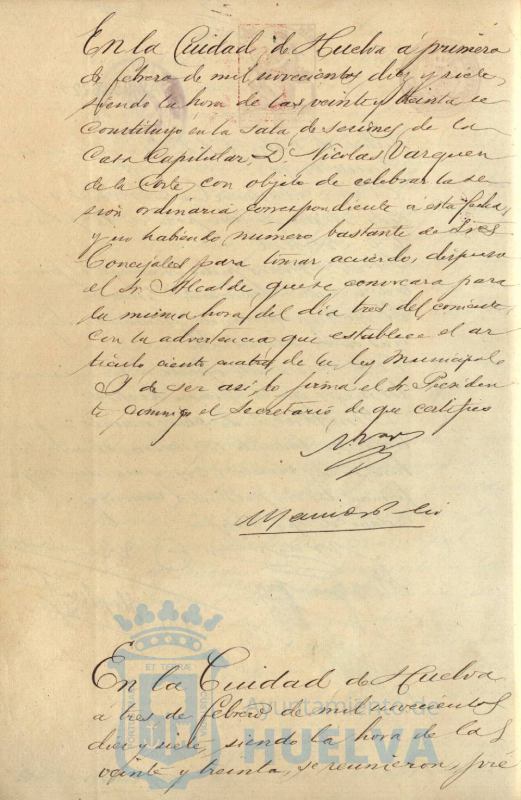 En la Ciudad de Huelva á primero
de febrero de mil novecientos diez y siete,
siendo la hora de las veinte y treinta se
constituyó en la sala de sesiones de la
Casa Capitular, D. Nicolas Vazquez
de la Corte, con objeto de celebrar la se
sion ordinaria correspondiente á esta fecha,
y no habiendo número bastante de Sres
Concejales para tomar acuerdo, dispuso
el Sr. Alcalde que se convocara para
la misma hora del dia tres del corriente
con la advertencia que establece el ar
tículo ciento cuatro de la ley Municipal.
Y de ser así lo firma el Sr. Presiden
te conmigo el Secretario de que certifico
En la Ciudad de Huelva
á tres de febrero de mil novecientos
diez y siete, siendo la hora de las
veinte y treinta, se reunieron, pré
ET TERRÆ
Ayuntamiento de
HUELVA